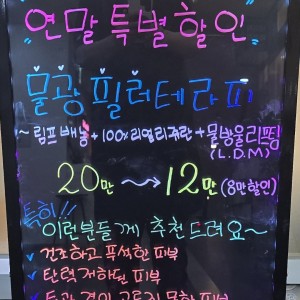 연말특별할인
물광필러테라피
~ 림프배농+100%리얼리쥬란+물방울리프팅
(L.D.M)
20만 ~→ 12만 (8만할인)
특히!!
이런분들께 추천드려요~
✓ 건조하고 푸석한 피부
✓ 탄력저하된 피부